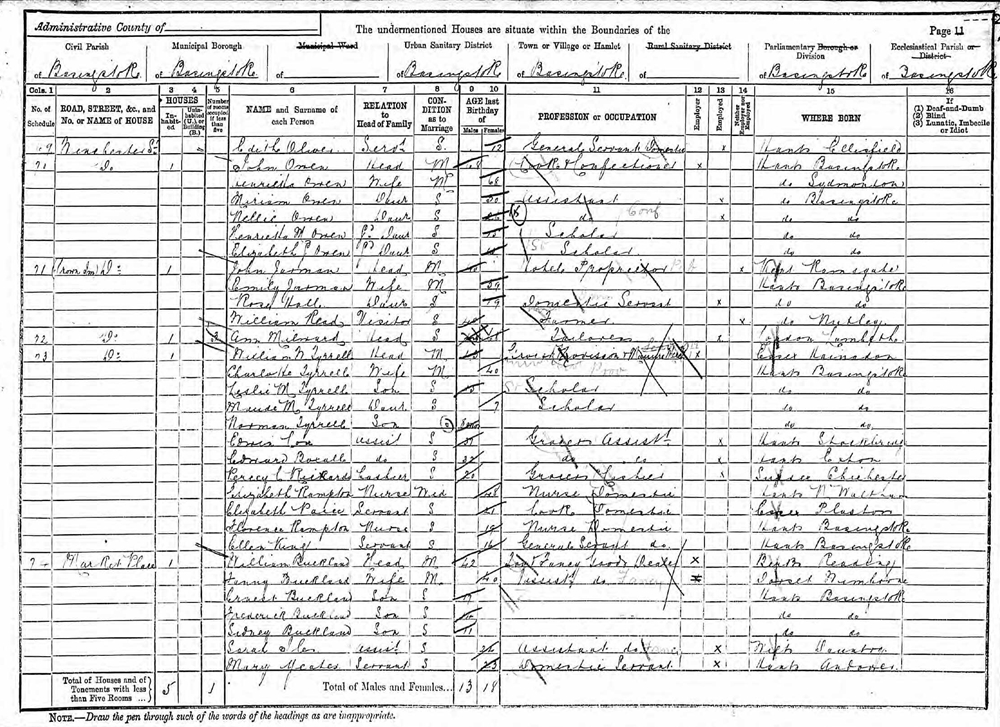 Administrative County of
The undermentioned Houses are situate within the Boundaries of the
Page 11
Civil Parish
Municipal Borough
Municipal Ward
Urban Sanitary District
Town or Village or Hamlet
Rural Sanitary District
Parliamentary Borough or Division
Ecclesiastical Parish or District
of Basingstoke of Basingstoke of of Basingstoke of Basingstoke of of Basingstoke of Basingstoke
Cols. 1 2 3 4 5 6 7 8 9 10 11 12 13 14 15 16
No. of Schedule
ROAD, STREET, &c., and No. or NAME of HOUSE
HOUSES
Inhabited
Uninhabited (U.) or Building (B.)
Number of rooms occupied if less than five
NAME and Surname of each Person
RELATION to Head of Family
CONDITION as to Marriage
AGE last Birthday of
Males Females
PROFESSION or OCCUPATION
Employer
Employed
Neither Employer nor Employed
WHERE BORN
If (1) Deaf-and-Dumb (2) Blind (3) Lunatic, Imbecile or Idiot
Winchester St Oliver Servt S. 12 General Servant Domestic x Hants Ellisfield
Do 1 John Owen Head M Cook & Confectioner x Hants Basingstoke
Henrietta Owen Wife M 68 do Sydmonton
Miriam Owen Daur S 30 Assistant x do Basingstoke
Nellie Owen Daur S do Conf x do do
Henrietta M Owen Gd Daur S Scholar do do
Elizabeth J Owen Gd Daur S Scholar do do
71 Crown Inn Do 1 John Jarman Head M Hotel Proprietor x Kent Ramsgate
Emily Jarman Wife M 39 Hants Basingstoke
Rose Hall Daur S 19 Domestic Servant x do do
William Read Visitor S Farmer x do Nutley
72 Do 1 3 Ann Milward Head S Tailoress London Lambeth
73 Do 1 William W Tyrrell Head M Provision x Essex
Charlotte Tyrrell Wife M 40 Hants Basingstoke
Leslie M Tyrrell Son S Scholar do do
Maude M Tyrrell Daur S 7 Scholar do do
Norman Tyrrell Son do do
Edwin Cox assist S Grocers Assist x Hants
Edward do S 22 do do x Hants
Percy C Rickards Cashier S 20 Grocers Cashier x Sussex Chichester
Elizabeth Rampton Nurse Wid 48 Nurse Domestic Hants N Waltham
Elizabeth Servant S 21 Cook Domestic Essex Plaistow
Florence Rampton Nurse S 19 Nurse Domestic Hants Basingstoke
Ellen King Servant S 16 General Servant do Hants Basingstoke
74 Market Place 1 William Buckland Head M 42 Fancy Goods Dealer x Berks Reading
Fanny Buckland Wife M 40 Assist do Fancy Dorset Wimborne
Ernest Buckland Son S 17 Hants Basingstoke
Frederick Buckland Son S do do
Sidney Buckland Son S 11 do do
Sarah Iles assist S Assistant do x Wilts Downton
Mary Yeates Servant S 23 Domestic Servant x Hants Andover
Total of Houses and of Tenements with less than Five Rooms ...) 5 1 Total of Males and Females... 13 19
NOTE.—Draw the pen through such of the words of the headings as are inappropriate.